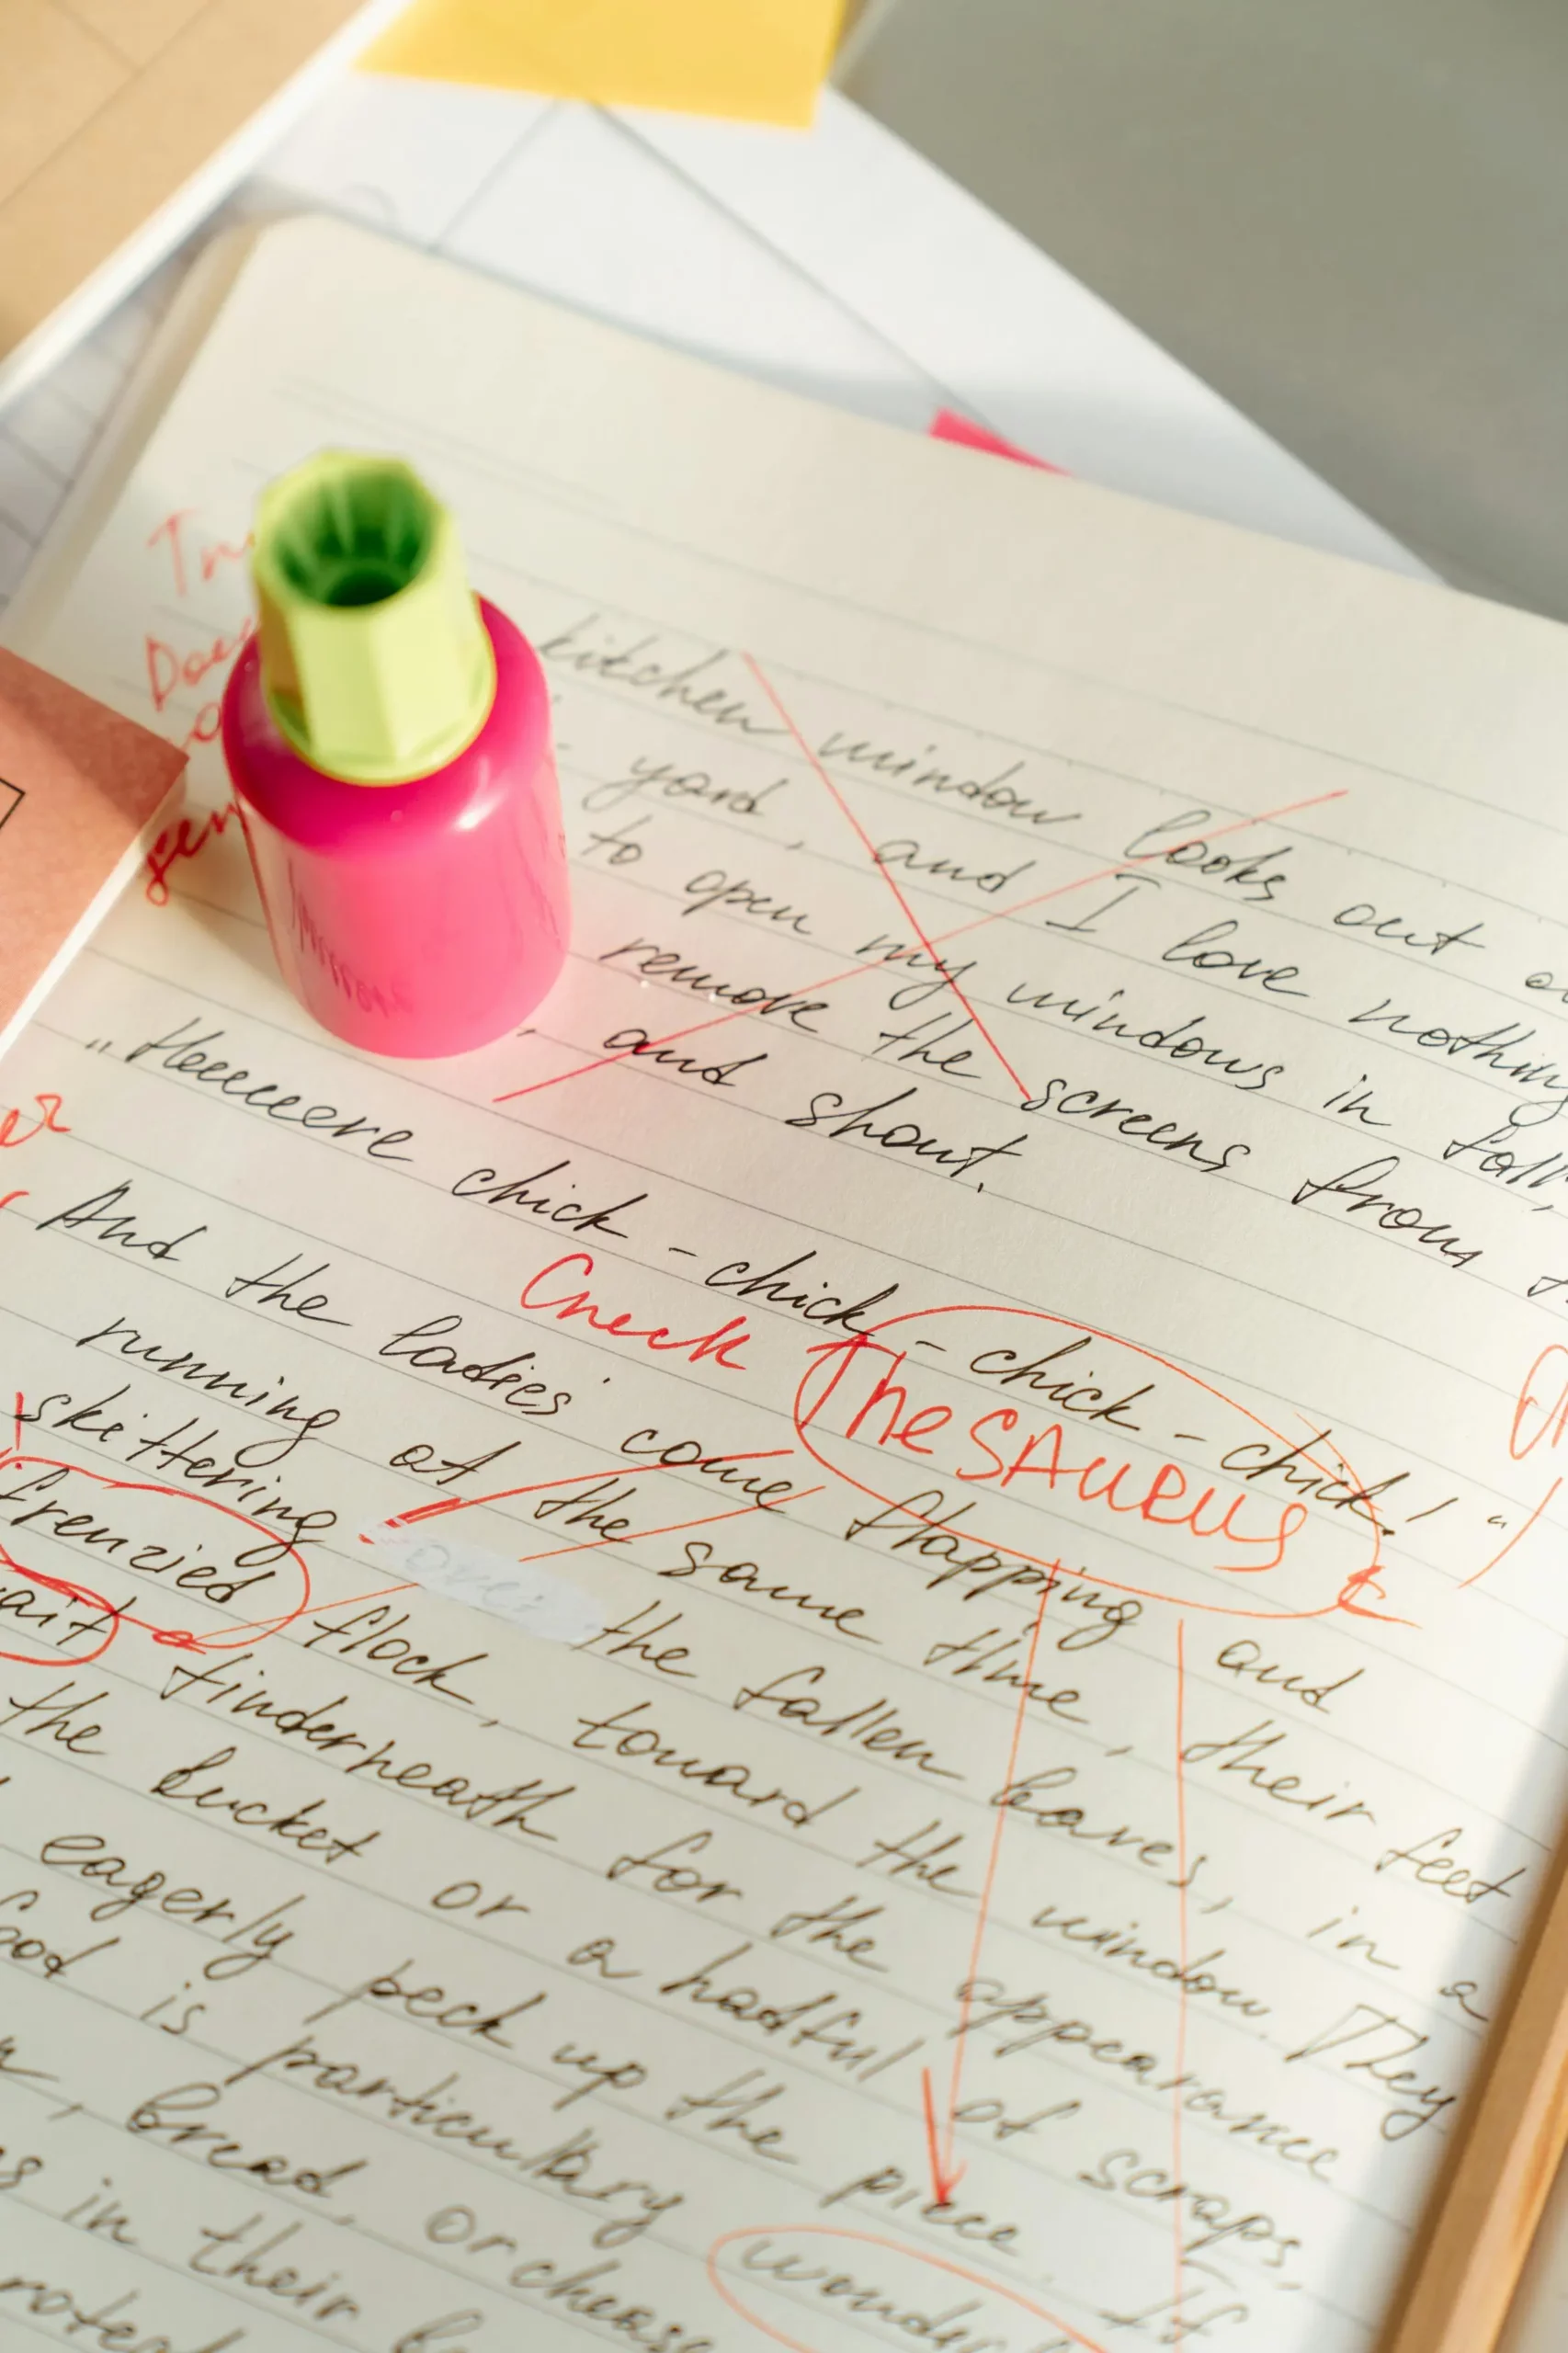 kitchen window looks out
yard, and I love nothing
to open my windows in fall,
remove the screens from
, and shout.
„Heeeeere chick-chick-chick-chick!“
Check
ThesAurus
And the ladies come flapping and
running at the same time, their feet
skittering over the fallen leaves, in a
frenzied flock, toward the window. They
wait finderneath for the appearance
the bucket or a hadful of scraps,
eagerly peck up the piece. If
food is particullary wonder
bread, or cheese
in their